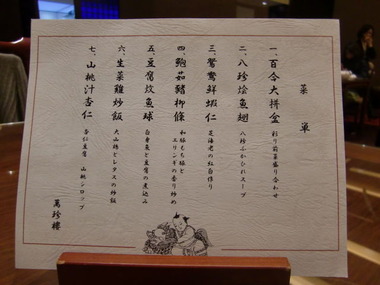 菜單
一、百合大拼盆
彩り前菜盛り合わせ
二、八珍燴魚翅
八珍ふかひれスープ
三、鴛鴦鮮蝦仁
芝海老の紅白作り
四、鮑茹豬柳條
和豚もち豚とエリンギの香り炒め
五、豆腐炆魚球
白身魚と豆腐の煮込み
六、生菜雞炒飯
大山鶏とレタスの炒飯
七、山桃汁杏仁
杏仁豆腐 山桃シロップ
萬珍樓